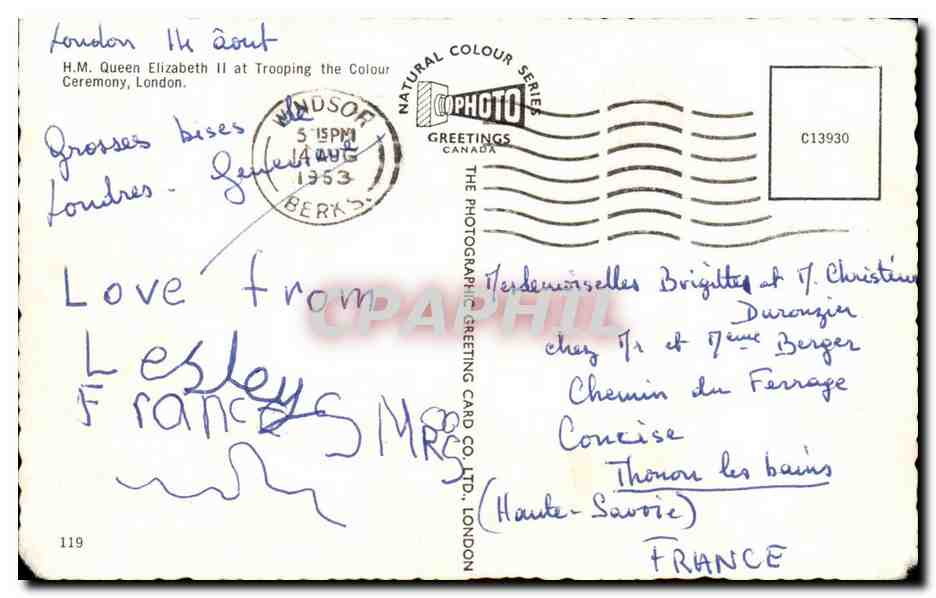 London 14 âout
H.M. Queen Elizabeth II at Trooping the Colour
Ceremony, London.
Grosses bises de
Londres - Geneviève
Love from
Lesley
Frances MRS
119
WINDSOR
5 15PM
14 AUG
1963
BERKS.
NATURAL COLOUR SERIES
PHOTO
GREETINGS
CANADA
THE PHOTOGRAPHIC GREETING CARD CO. LTD., LONDON
C13930
Mesdemoiselles Brigitte et M. Christine
Durouzier
chez Mr et Mème Berger
Chemin du Ferrage
Concise
Thonon les bains
(Haute-Savoie)
FRANCE
CPAPHIL